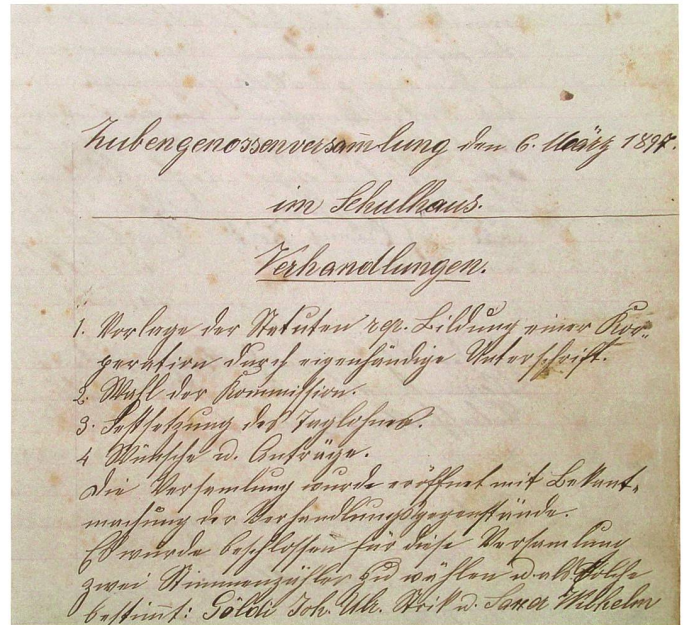 Hubengenossenversam̅lung den 6. März 1897.
im Schulhaus.
Verhandlungen.
1. Vorlage der Statuten resp. Bildung einer Kor-
peration durch eigenhändige Unterschrift.
2. Wahl der Kommission.
3. Festsetzung des Taglohnes.
4 Wünsche u. Anträge.
Die Versamlung wurde eröffnet mit Bekant-
machung der Verhandlungsgegenstände.
Es wurde beschlossen für diese Versamlung
zwei Stimmenzähler zu wählen u. als solche
bestim̅t: Göldi Joh. Ulr. u. Saxer Wilhelm